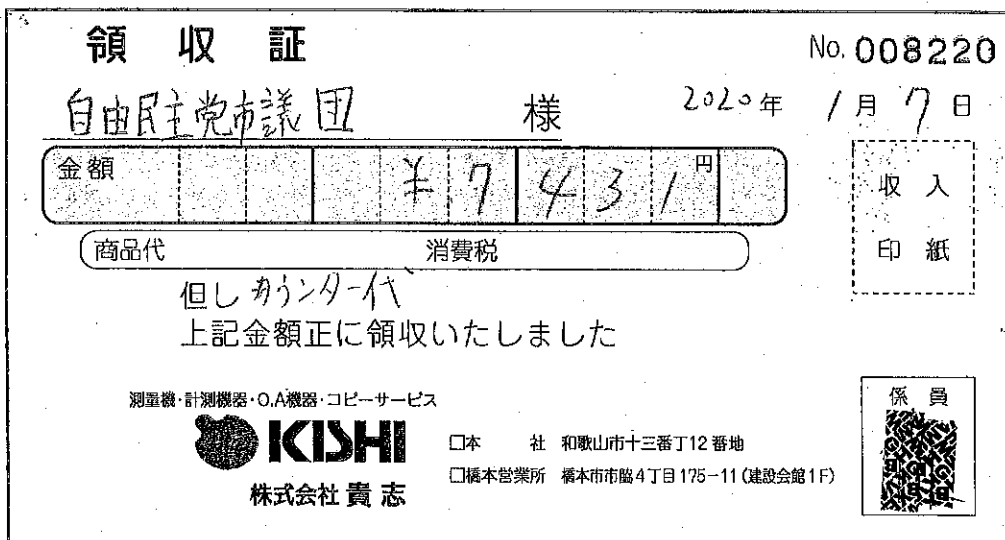 領収証
No. 008220
自由民主党市議団 様
2020年 1月 7日
金額 ¥7431円
収入
印紙
商品代 消費税
但し カウンター代
上記金額正に領収いたしました
測量機・計測機器・O.A機器・コピーサービス
KISHI
株式会社 貴志
係員
□本 社 和歌山市十三番丁12番地
□橋本営業所 橋本市市脇4丁目175-11(建設会館1F)